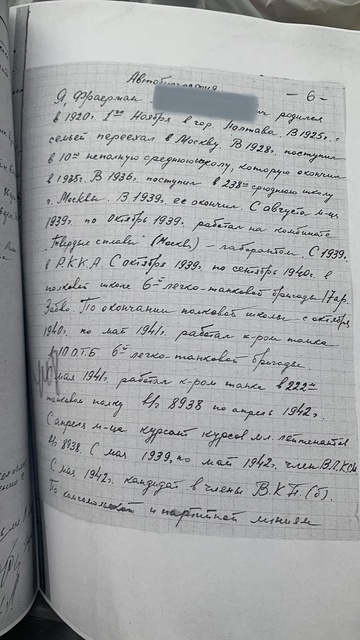 Автобиография
— 6 —
Я, Фраерман ич родился
в 1920г. 1го Ноября в гор. Полтава. В 1925г. с
семьей переехал в Москву. В 1928г. поступил
в 10ю неполную среднюю школу, которую окончил
в 1935г. В 1936г. поступил в 238ю среднюю школу
г. Москвы. В 1939г. ее окончил. С августа м-ца
1939г. по Октябрь 1939г. работал на комбинате
Твердые сплавы (Москва) – лаборантом. С 1939г.
в Р.К.К.А. С октября 1939г. по сентябрь 1940г. в
полковой школе 6й легко-танковой бригады 17ар.
Заб.во. По окончании полковой школы с октября
1940г. по май 1941г. работал к-ром танка
в 10 О.Т.Б. 6й легко-танковой бригады
мая 1941г. работал к-ром танка в 222м
танковом полку в/ч 8938 по апрель 1942г.
С апреля м-ца курсант курсов мл. лейтенантов
в/ч 8938. С мая 1939г, по май 1942г. член В.Л.К.С.М.
С мая 1942г. кандидат в члены В.К.П.(б).
По комсомольской и партийной линиям